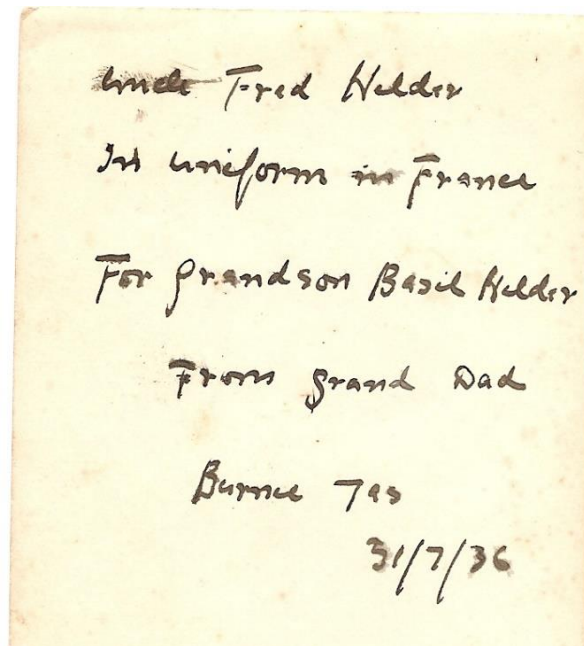 Uncle Fred Helder
In uniform in France
For Grandson Basil Helder
From Grand Dad
Burnie Tas
31/7/36